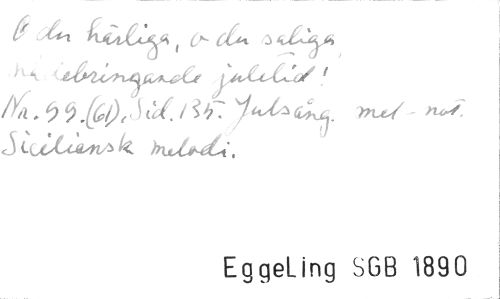 O du härliga, o du saliga,
nådebringande juletid!
Nr. 99. (61), Sid. 135. Julsång. met - not.
Siciliansk melodi.
EggeLing SGB 1890